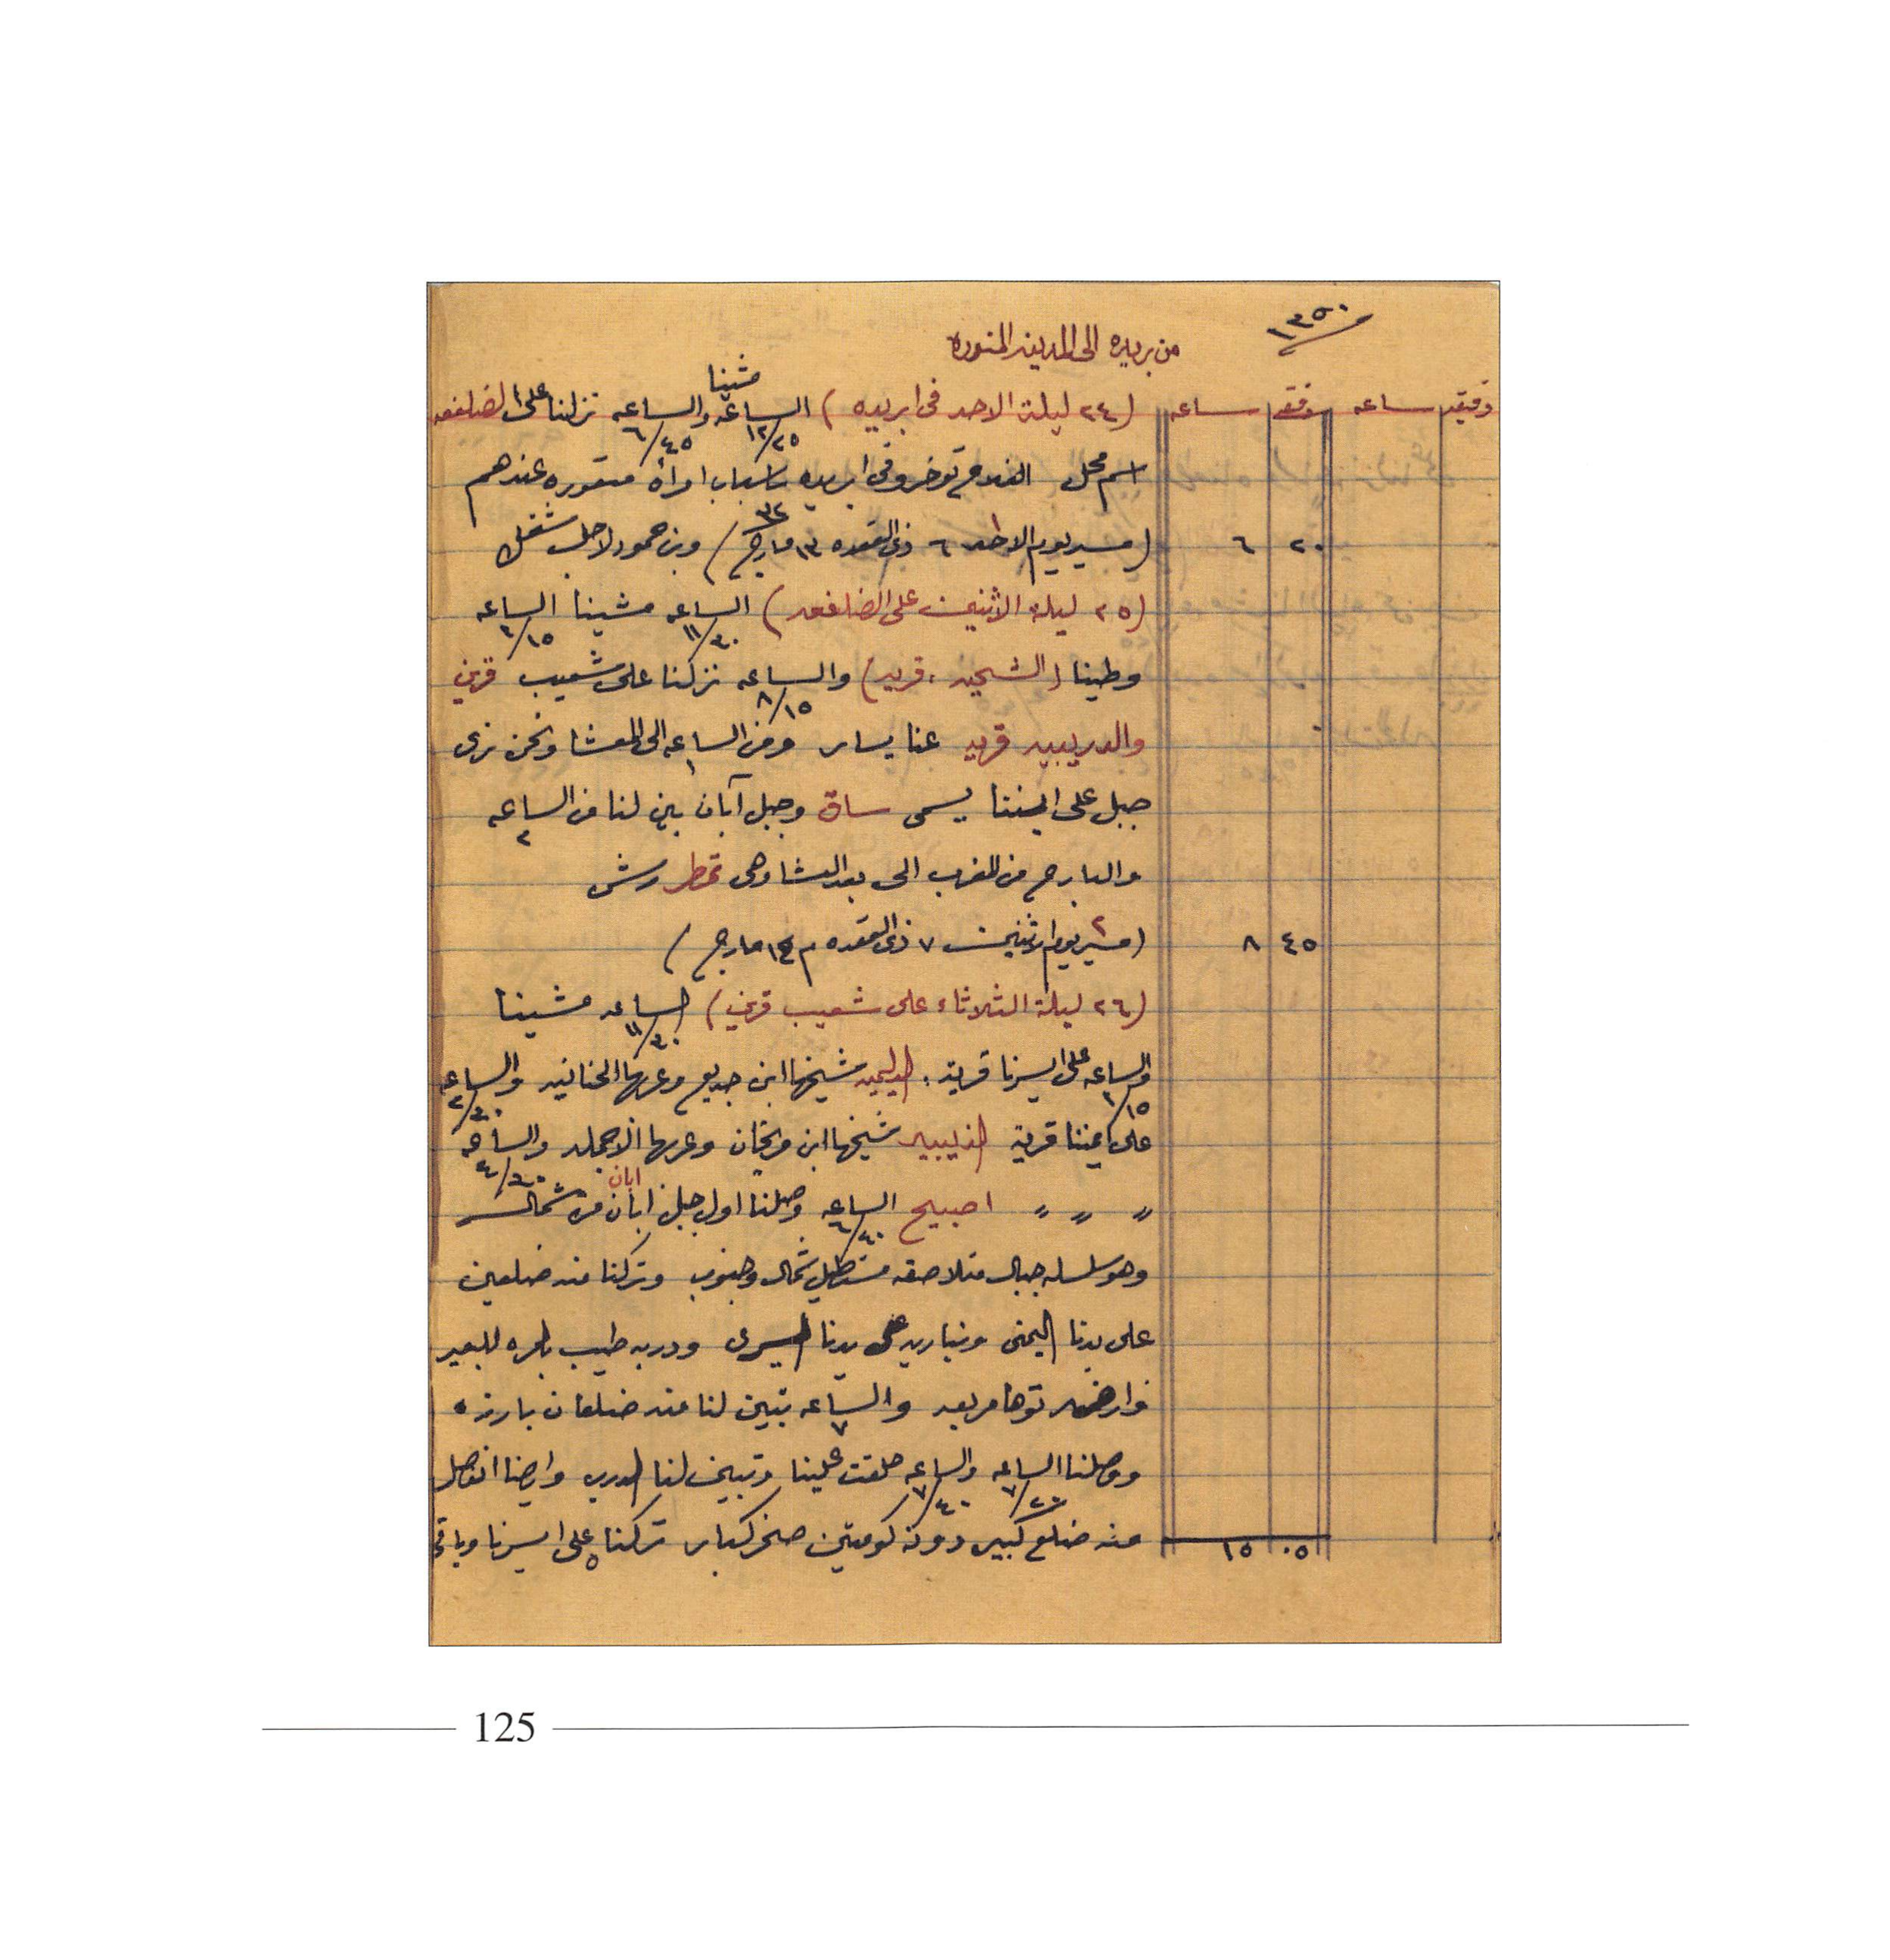 ١٣٥٠
من بريده الى المدينه المنوره
دقيقه ساعه دقيقه ساعه (٢٤ ليلة الاحد فى ابريده) الساعه ١٢/٢٥ مشينا والساعه ٦/٤٥ نزلنا على الضلفعه
اسم محل الفلاح توخرو فى ابريده باسباب امرأة عندهم
٢٠ ٦ (مسير يوم الاحد ٦ ذى القعده ١٣ مارج ٣٢) وبن حمود لاجل شغل
(٢٥ ليلة الاثنين على الضلفعه) الساعه ١١/٣٠ مشينا الساعه ١/١٥
وطينا (الشيحيه، قريه) والساعه ٨/١٥ نزلنا على شعيب قرني
والدريبيه قريه عنا يسار ومن الساعه ١ الى المعشا ونحن نرى
جبل على ايمننا يسمى ساق وجبل آبان بين لنا من الساعه ٢
والبارح من المغرب الى بعد العشا وهى تمطر رش
٤٥ ٨ (مسير يوم ٢ اثنين ٧ ذى القعده م ١٤ مارج)
(٢٦ ليلة الثلاثاء على شعيب قرني) الساعه ١١/٣٠ مشينا
والساعه ١/١٥ على ايسرنا قرية، شيخها ابن جديع وعربها والساعه ٢/٣٠
على ايمننا قرية الذيبيه شيخها ابن وعربها والساعه ٤/٣٠
〃 〃 〃 اصبيح الساعه ٦/٤٠ وصلنا اول جبل ابان ابان من شمال
وهو سلسله جبال متلاصقه مستطيل شمال وجنوب وتركنا منه ضلعين
على يدنا اليمنى على يدنا اليسرى ودربه طيب للبعير
وارضه توها مربعه والساعه ٧ تبين لنا منه ضلعان بارزه
ووصلنا الساعه ٧/٢٠ والساعه ٧/٤٠ حلقت علينا وتبين لنا الدرب وايضا انفصل
١٥ ٠٥ منه ضلع كبير دونه كومتين صخر كبار تركناه على ايسرنا وباقى
125